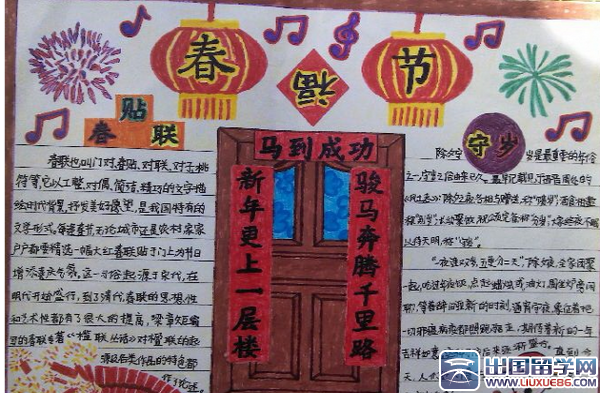 春
福
节
贴
春
联
守岁
马到成功
新年更上一层楼
骏马奔腾千里路
春联也叫门对、春贴、对联、对子、桃
符等,它以工整、对偶、简洁、精巧的文字描
绘时代背景,抒发美好愿望,是我国特有的
文学形式。每逢春节,无论城市还是农村,家家
户户都要精选一幅大红春联贴于门上,为节日
增添喜庆气氛。这一习俗起源于宋代,在
明代开始盛行,到了清代,春联的思想性
和艺术性都有了很大的提高,梁章钜编
写的春联专著《楹联丛话》对楹联的起
源及各类作品的特色都
作了论述。
除夕守岁是最重要的年俗
之一,守岁之俗由来已久。最早记载见于西晋周处的
待天明,称“
“一夜连双岁,五更分二天”除夕夜,全家团聚
一起,吃过年夜饭,点起蜡烛或油灯,围坐炉旁闲
聊,等着辞旧迎新的时刻,通宵守夜,象征着把
一切邪瘟病疫都照跑驱走,期待着新的一年
吉祥如意
出国留学网
www.liuxue86.com